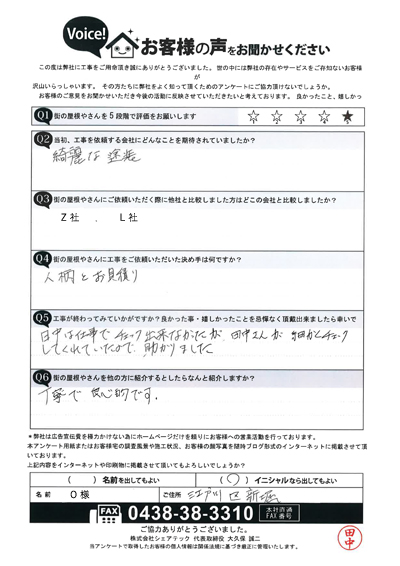 Voice!
お客様の声をお聞かせください
この度は弊社に工事をご用命頂き誠にありがとうございました。世の中には弊社の存在やサービスをご存知ないお客様
が
沢山いらっしゃいます。 その方たちに弊社をよく知って頂くためのアンケートにご協力頂けないでしょうか。
お客様のご意見をお聞かせいただき今後の活動に反映させていただきたいと考えております。 良かったこと、嬉しかっ
Q1 街の屋根やさんを5段階で評価をお願いします ☆ ☆ ☆ ☆ ★
Q2 当初、工事を依頼する会社にどんなことを期待されていましたか?
綺麗な塗装
Q3 街の屋根やさんにご依頼いただく際に他社と比較しました方はどこの会社と比較しましたか?
Z社 . L社
Q4 街の屋根やさんに工事をご依頼いただいた決め手は何ですか?
人柄とお見積り
Q5 工事が終わってみていかがですか?良かった事・嬉しかったことを忌憚なく頂戴出来ましたら幸いで
日中は仕事でチェック出来なかったが、田中さんが細かくチェック
してくれていたので、助かりました
Q6 街の屋根やさんを他の方に紹介するとしたらなんと紹介しますか?
丁寧で良心的です.
*弊社は広告宣伝費を極力かけない為にホームページだけを頼りにお客様への営業活動を行っております。
本アンケート用紙またはお客様宅の調査風景や施工状況、お客様の顔写真を随時ブログ形式のインターネットに掲載させて頂
いております。
上記内容をインターネットや印刷物に掲載させて頂いてもよろしいでしょうか?
( ) 名前を出してもよい (○) イニシャルなら出してもよい
名前 O様 ご住所 江戸川区新堀
FAX 0438-38-3310 本社直通 FAX番号
ご協力ありがとうございました。
株式会社シェアテック 代表取締役 大久保 誠二
当アンケートで取得したお客様の個人情報は関係法規に基づき厳正に管理いたします。
田中